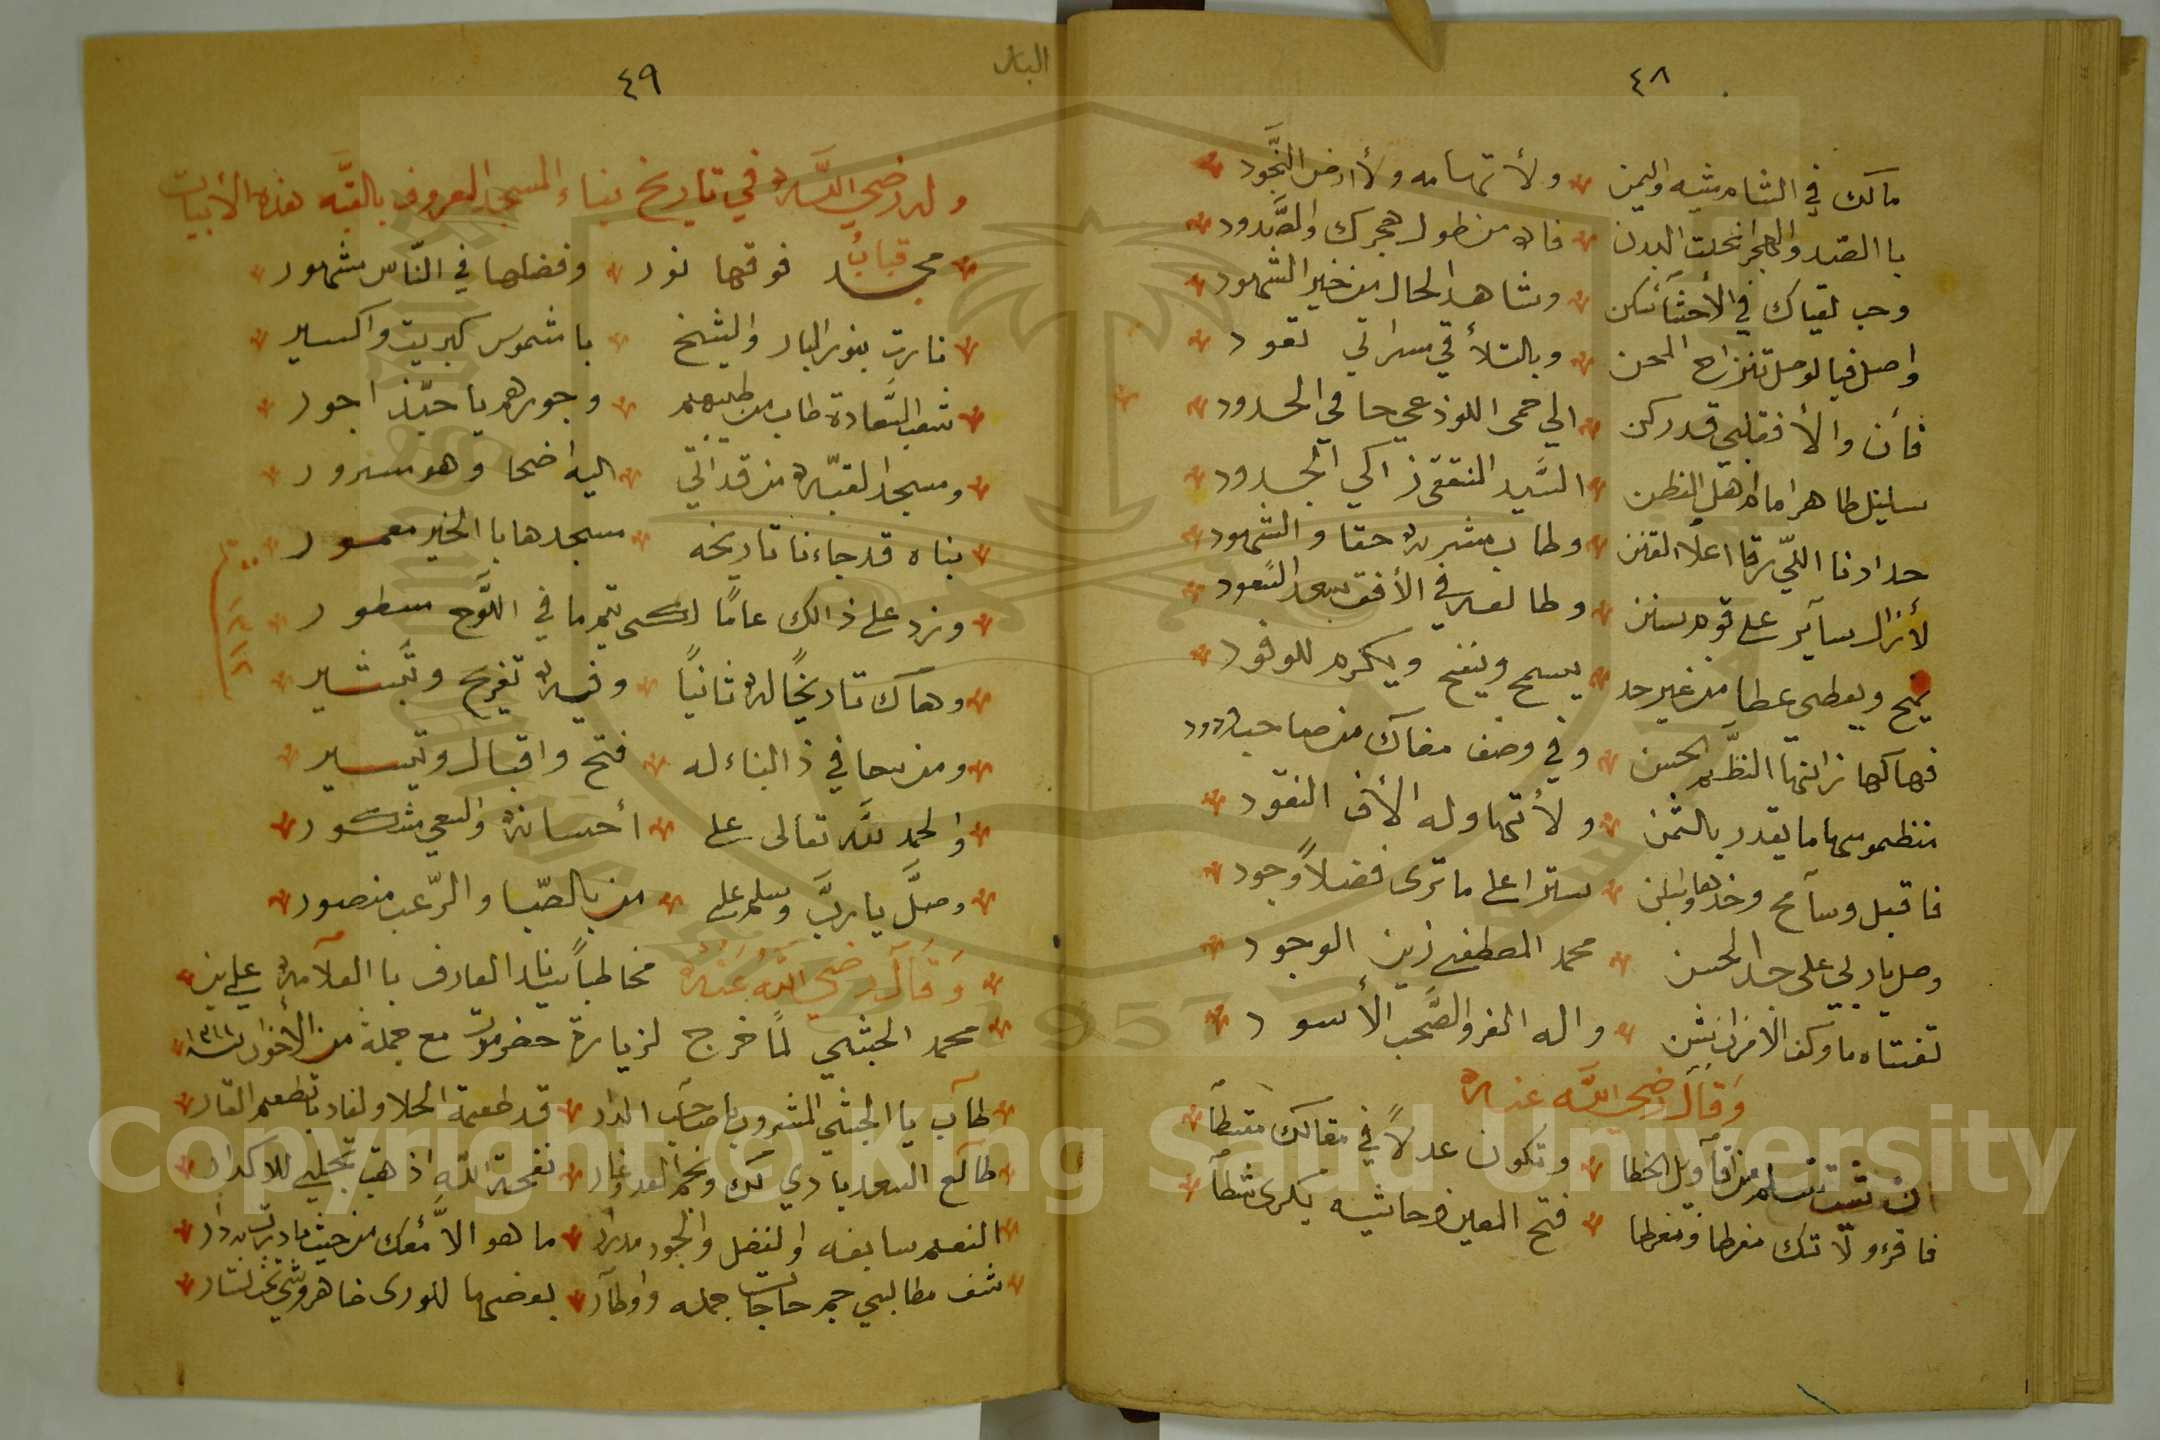 ٤٨
مالك في الشام شبه واليمن ولأ تهامه ولأ ارض النجود
با الصد والهجر انحلت البدن فاه من طول هجرك والصدود
وحب لقياك في الأحشا سكن وشاهد الحال من خير الشهود
واصل فبالوصل تنزاح المحن وبالتلأقي مسراتي تعود
فأن والأ فقلبي قد ركن الى حمى اللوذعي حامي الحدود
سليل طاهر امام اهل الفطن السيد المنتقى زاكي الجدود
حدادنا اللي رقا اعلأ القنن وطاب مشربه حقا والشهود
لأزال سآير على قوم سنن وطالعه في الأفق سعد السعود
يمنح ويعطي عطا من غير حد يسمح وينفح ويكرم للوفود
فهاكها زانها النظم الحسن وفي وصف مضاك من صاحب ودود
منظومها ما يقدر بالثمن ولأ تهاوله الأف النقود
فاقبل وسآمح وخذها ولبن سترا على ما ترى فضلاً وجود
وصل يا ربي على جد الحسن محمد المصطفى زين الوجود
تغشاه ما وكف الأمزان شن واله الغر والصحب الأسود
وقال رضي الله عنه
ان شئت تسلم من اقآويل الخطا وتكون عدلاً في مقالك مقسطاً
فاقرء ولا تك مفرطا ومفرطا فتح المعين وحاشيه بكري شطاً
البار
٤٩
وله رضي الله عنه في تاريخ بناء المسجد المعروف بالقبه هذه الأبيات
قباب مجد فوقها نور وفضلها في النّاس مشهور
نارت بنور البار والشيخ با شموس كبريت واكسير
شعب السّعادة طاب من طيبهم وجورهم يا حبّذ اجور
ومسجد القبّه من قد اتي اليه اضحا وهو مسرور
بناه قد جاءنا تاريخه مسجدها با الخير معمور
١٣١٠
وزد على ذالك عامًا لكي يتم ما في اللّوح مسطور
وهاك تاريخًا له ثانيًا وفيه تفريح وتبشير
ومن سعا في ذ البناء له فتح واقبال وتيسير
والحمد لله تعالى على أحسانه والسعي مشكور
وصلّ يا ربّ وسلم على من بالصّبا والرّعب منصور
وقال رضي الله عنه مخاطباً سيد العارف با العلآمه علي بن
محمد الحبشي لمّا خرج لزيارة حضرموت مع جملة من الأخوان سنة ١٣١١
طآب يا الحبشي المشروب يا صاحب الدار قد طعمة الحلا ولغاد با تطعم القار
طآلع السعد يا دي لك ونجم العد وغار نفحة الله اذ هبت تجلي للاكدار
النعم سابغه والفضل والجود مدرار ما هو الأ معك من حيث ما درت به دار
شف مطالبي جم حاجات جمله واوطآر بعضها للورى ظاهر وشي تحت الأستار